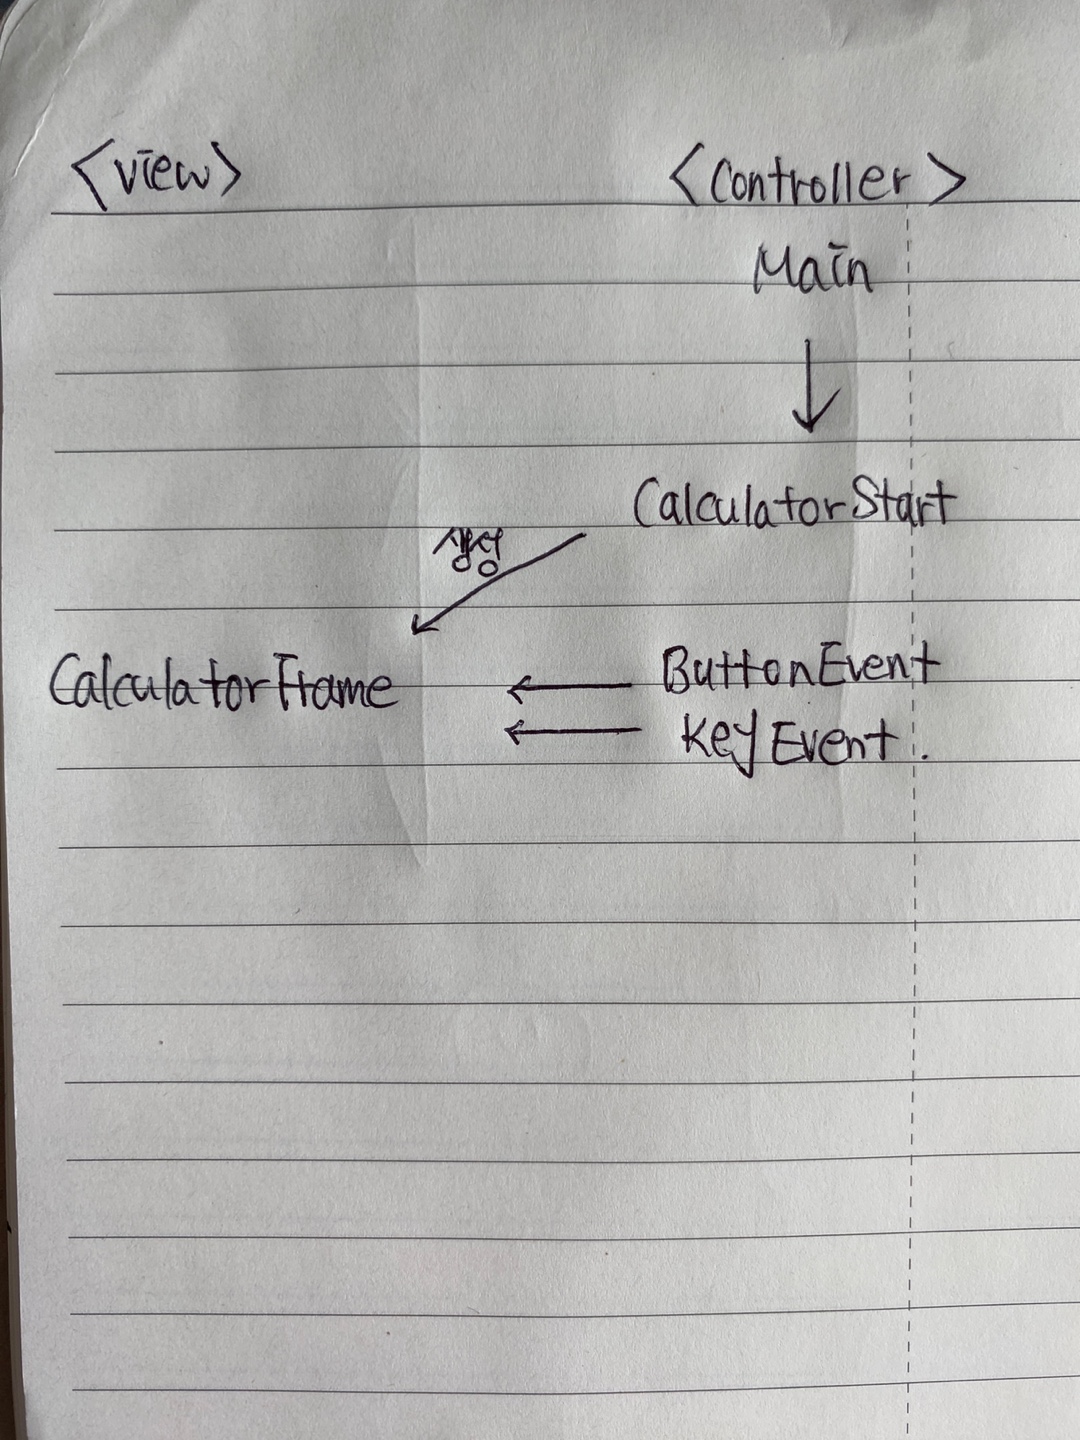 <view>
<Controller>
Main
CalculatorStart
생성
CalculatorFrame
ButtonEvent
KeyEvent.